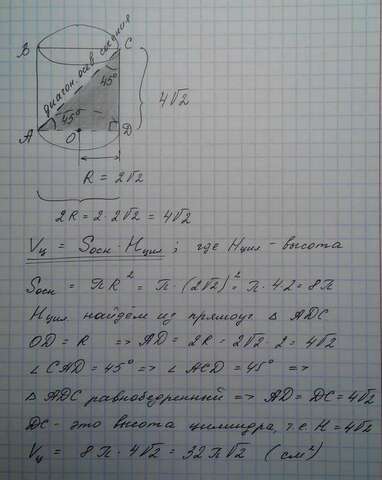 B
C
диагон. осев. сечения
45°
4√2
45°
A
O
D
R = 2√2
2R = 2·2√2 = 4√2
Vц = Sосн · Hцил ; где Hцил - высота
Sосн = πR² = π·(2√2)² = π·4·2 = 8π
Hцил найдём из прямоуг. △ ADC
OD = R => AD = 2R = 2√2·2 = 4√2
∠CAD = 45° => ∠ACD = 45° =>
△ ADC равнобедренный => AD = DC = 4√2
DC - это высота цилиндра, т.е. H = 4√2
Vц = 8π · 4√2 = 32π√2 (см³)